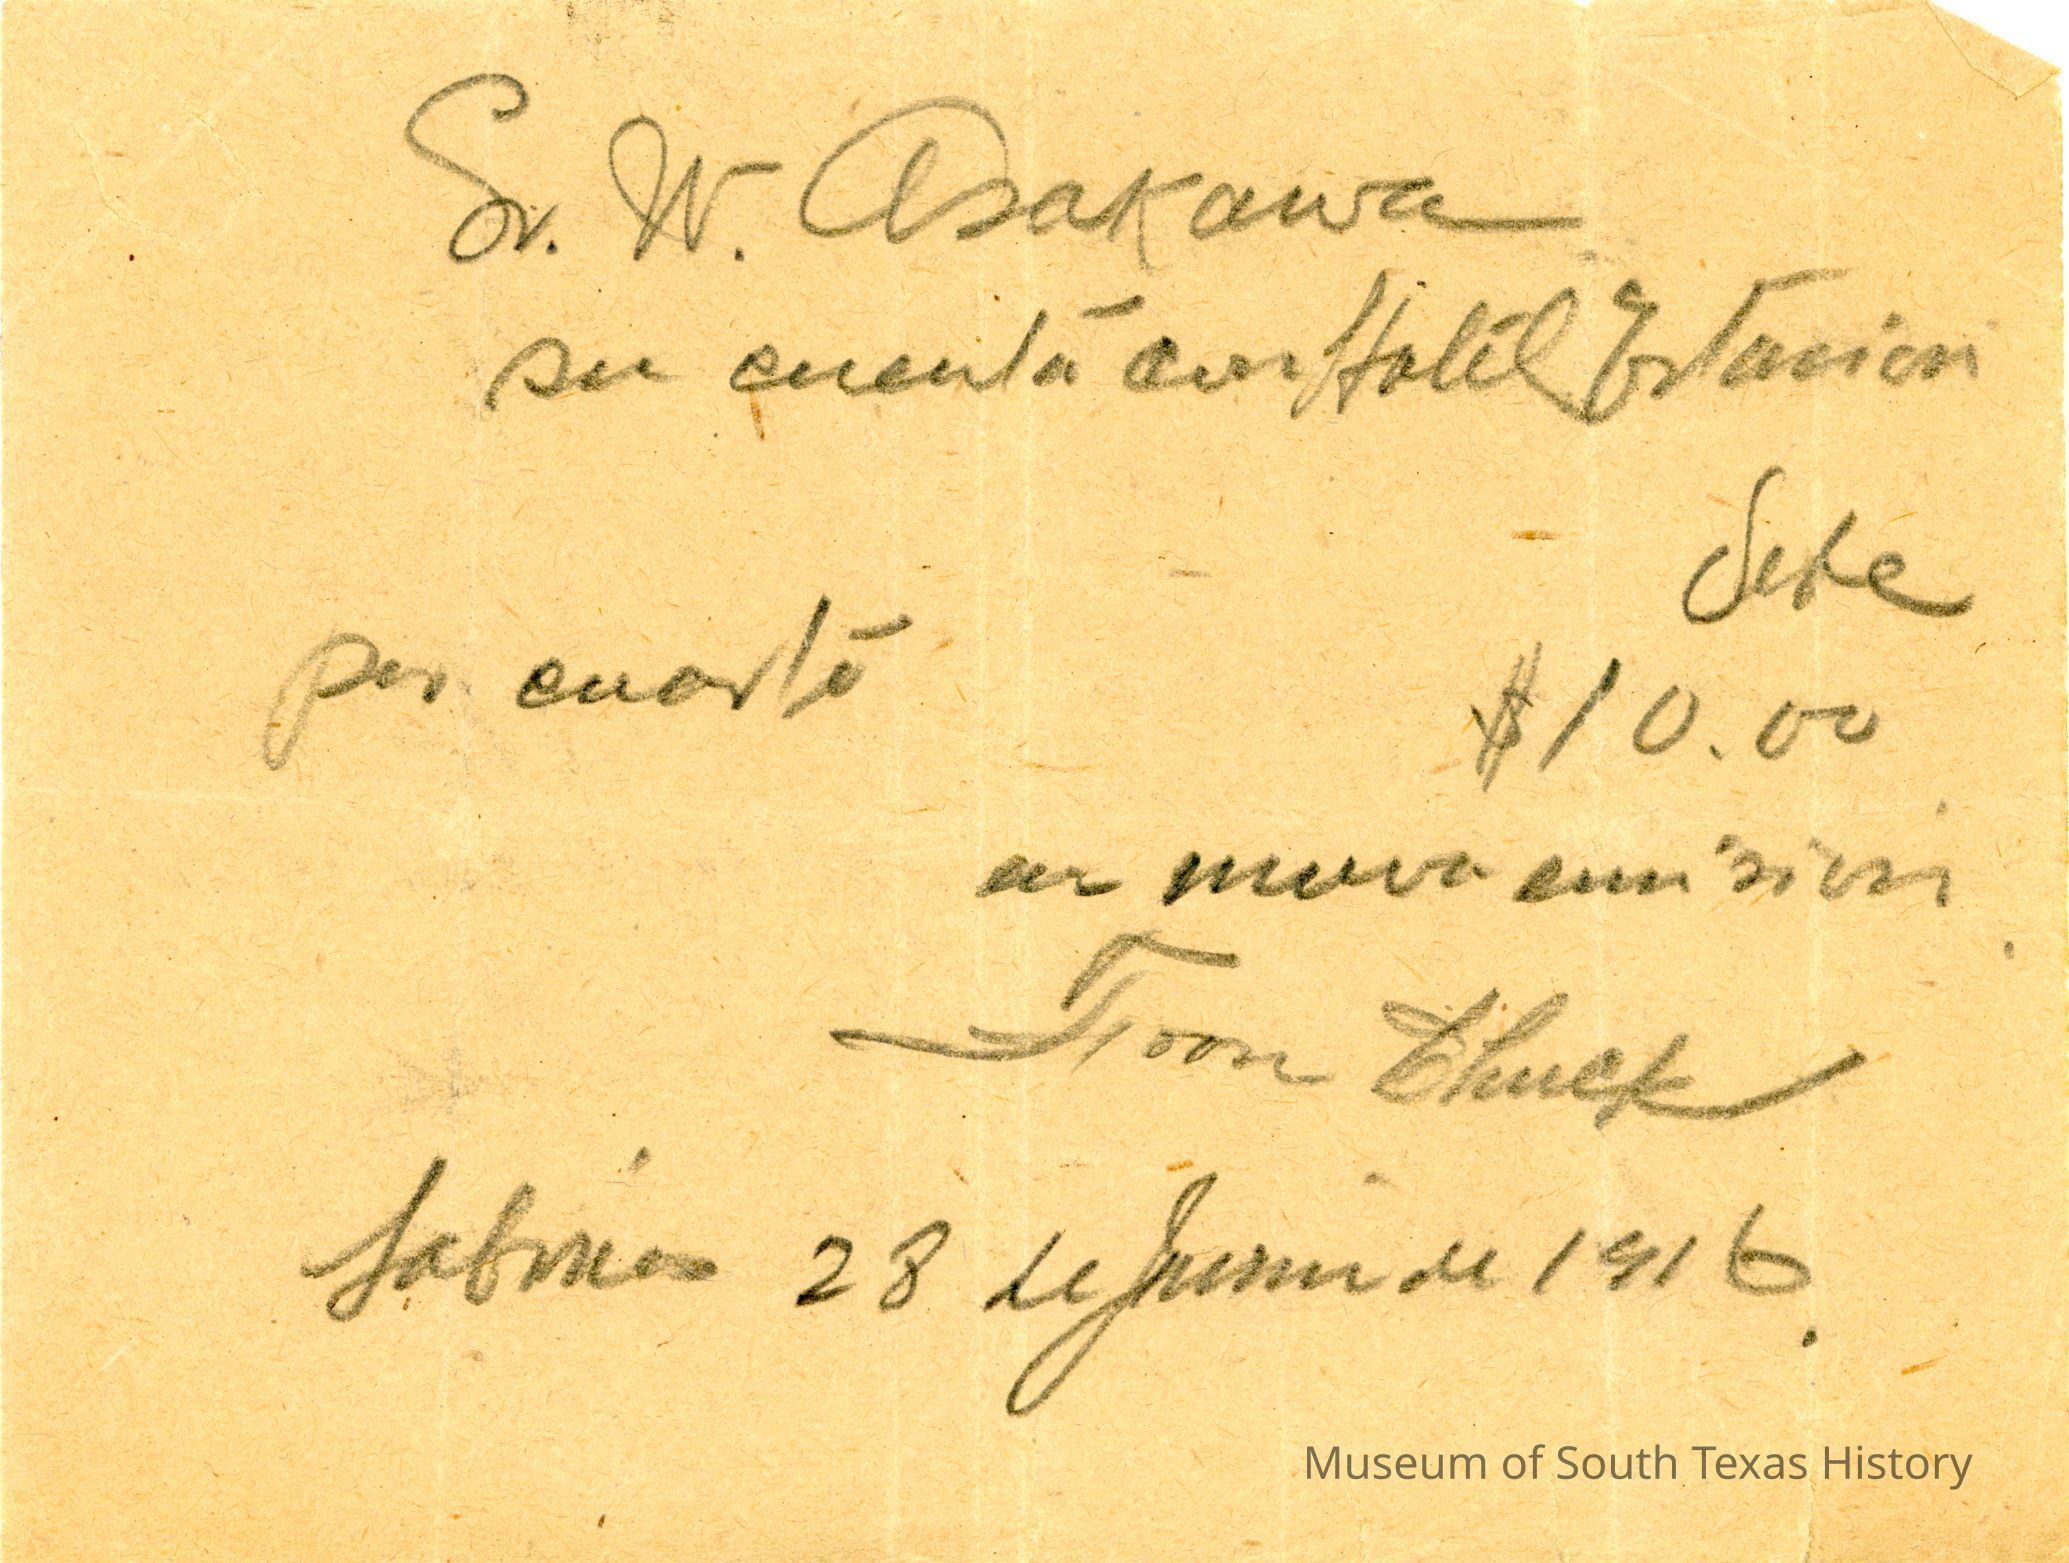 Sr. W. Asakawa
su cuenta con Hotel Estacion
Debe
por cuarto $10.00
en nueva emision
Foon Chuck
Sabinas 28 de Junio de 1916.
Museum of South Texas History